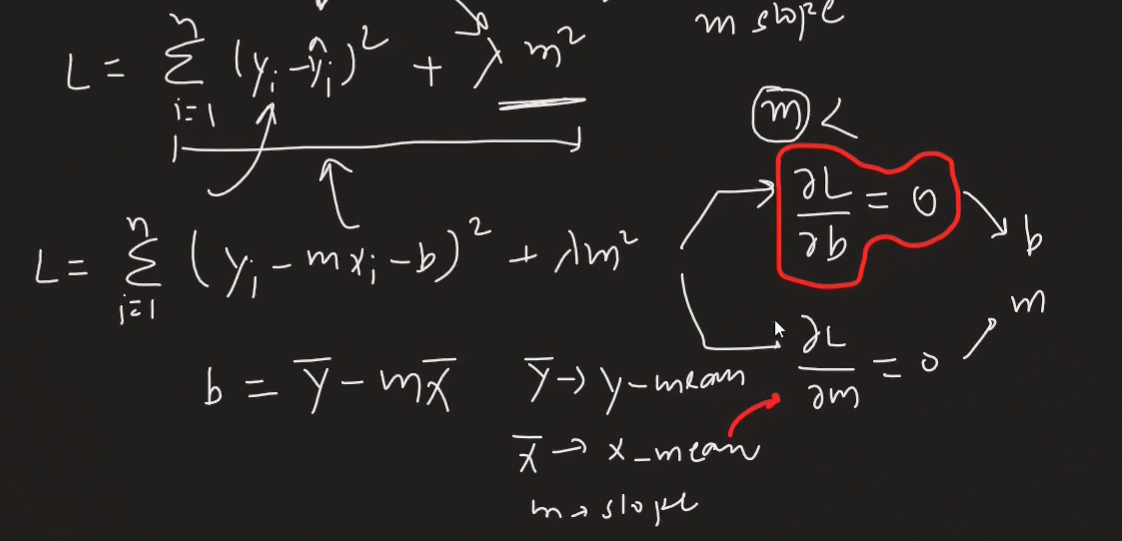 m slope
L = Σ_{i=1}^{n} (y_i - ŷ_i)² + λ m²
m <
∂L/∂b = 0
L = Σ_{i=1}^{n} (y_i - mx_i - b)² + λm²
b
m
∂L/∂m = 0
b = y̅ - mx̅
y̅ → y-mean
x̅ → x_mean
m → slope